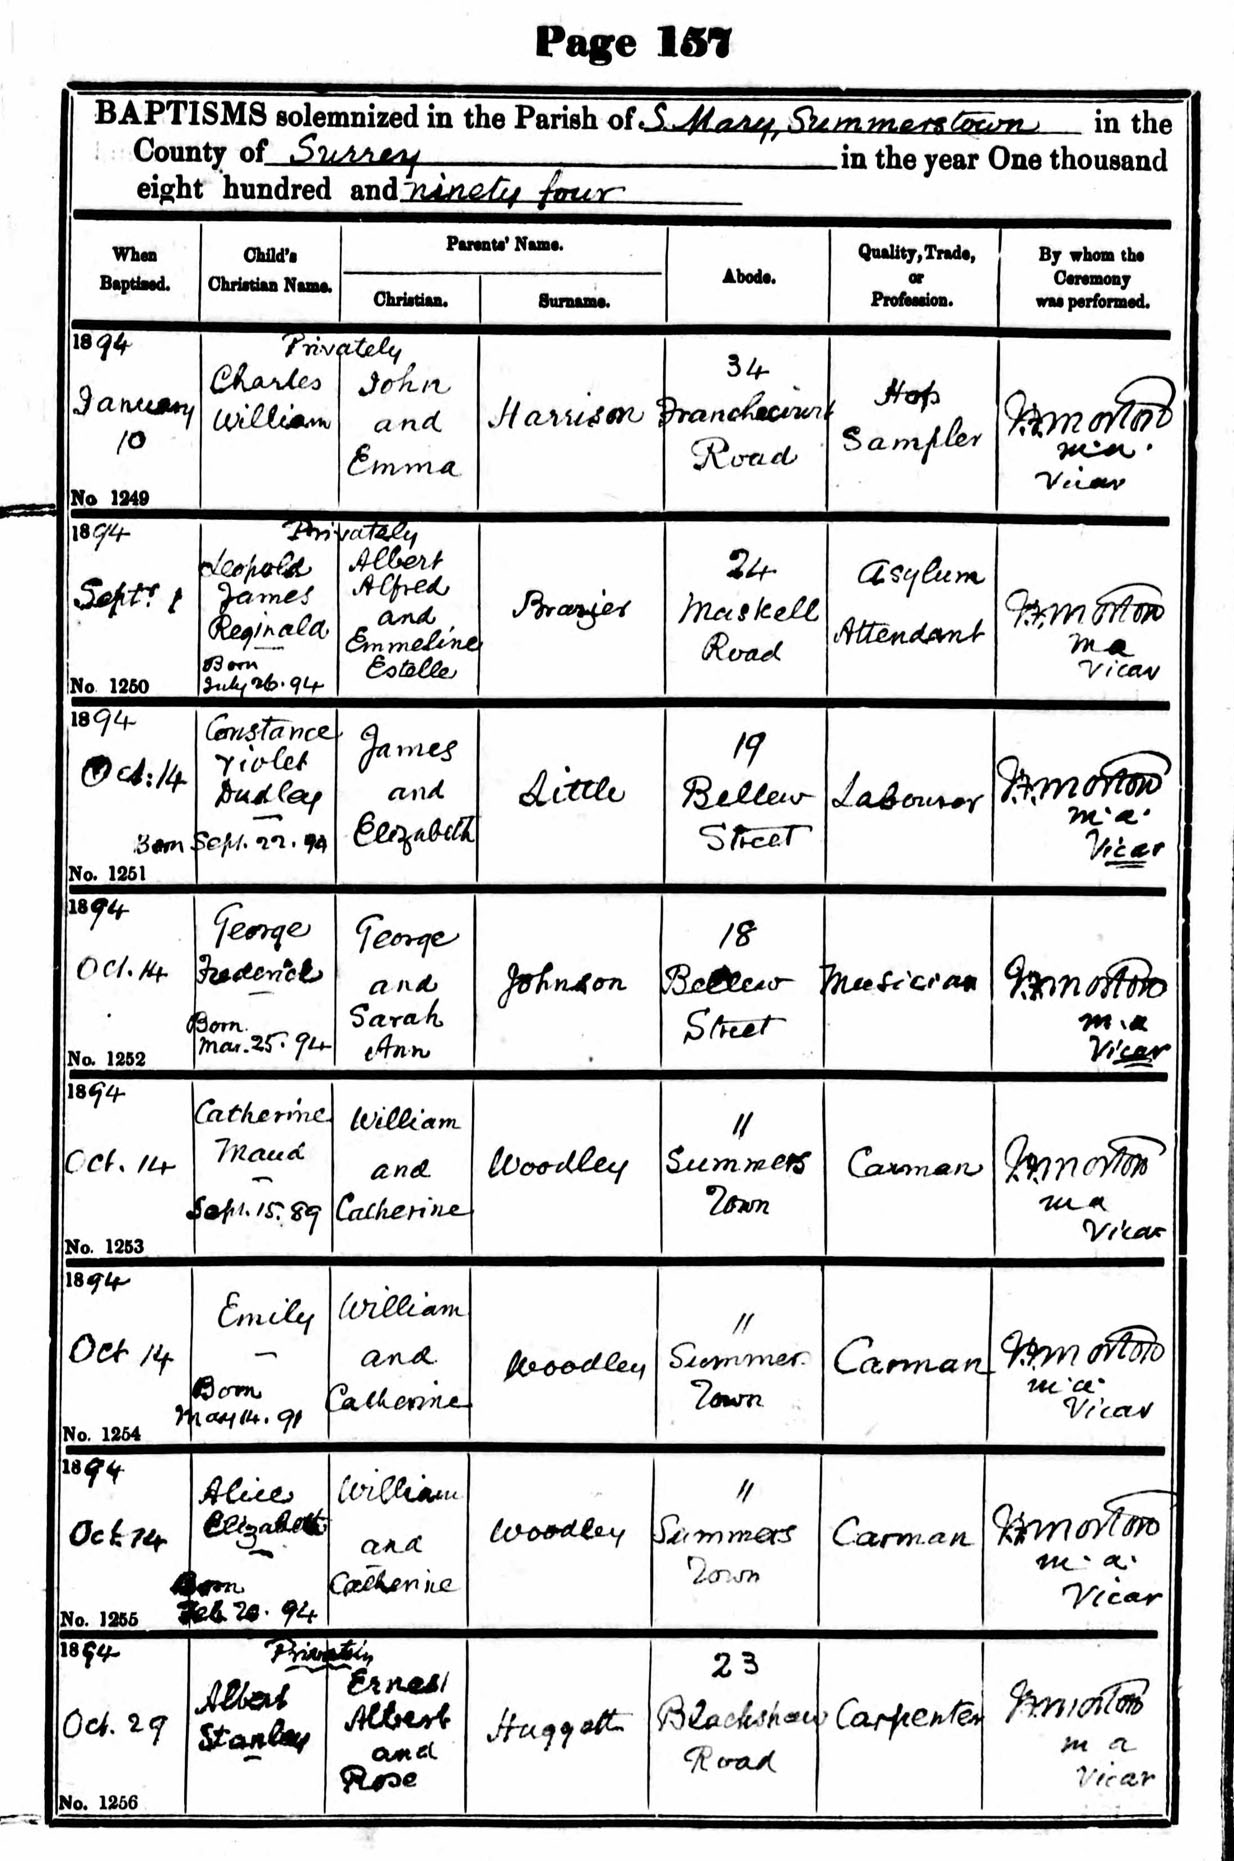 Page 157
BAPTISMS solemnized in the Parish of S. Mary, Summerstown in the
County of Surrey in the year One thousand
eight hundred and ninety four
When Baptized.
Child's Christian Name.
Parents' Name.
Christian.
Surname.
Abode.
Quality, Trade, or Profession.
By whom the Ceremony was performed.
1894
Privately
January
10
Charles
William
John
and
Emma
Harrison
34
Franchecourt
Road
Hop
Sampler
Morton
M.A.
Vicar
No 1249
1894
Privately
Sept. 1
Leopold
James
Reginald
Born
July 26. 94
Albert
Alfred
and
Emmeline
Estelle
Brazier
24
Maskell
Road
Asylum
Attendant
Morton
M A
Vicar
No. 1250
1894
Oct: 14
Constance
Violet
Dudley
Born Sept. 22. 94
James
and
Elizabeth
Little
19
Bellew
Street
Labourer
Morton
M. A.
Vicar
No. 1251
1894
Oct. 14
George
Frederick
Born
Mar. 25. 94
George
and
Sarah
Ann
Johnson
18
Bellew
Street
Musician
Morton
M. A
Vicar
No. 1252
1894
Oct. 14
Catherine
Maud
Sept. 15. 89
William
and
Catherine
Woodley
"
Summers
Town
Carman
Morton
M A
Vicar
No. 1253
1894
Oct 14
Emily
Born
May 14. 91
William
and
Catherine
Woodley
"
Summer
Town
Carman
Morton
M. A.
Vicar
No. 1254
1894
Oct. 14
Alice
Elizabeth
Born
Feb. 20. 94
William
and
Catherine
Woodley
"
Summers
Town
Carman
Morton
M. A.
Vicar
No. 1255
1894
Privately
Oct. 29
Albert
Stanley
Ernest
Albert
and
Rose
Huggett
23
Blackshaw
Road
Carpenter
Morton
M A
Vicar
No. 1256